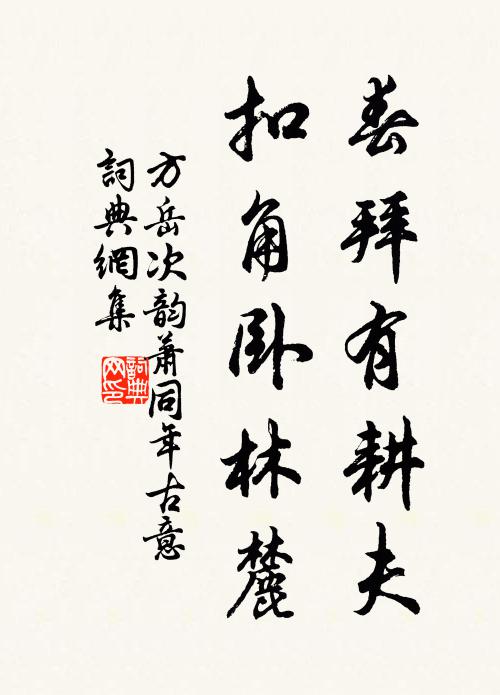 春拜有耕夫
扣角臥林麓
方岳次韵蕭同年古意
詞典網集
詞典
网印